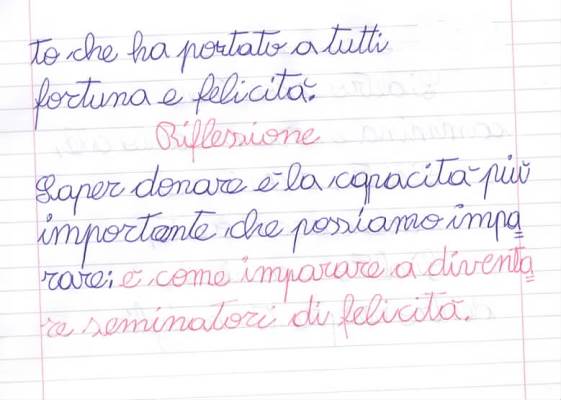 to che ha portato a tutti
fortuna e felicità.
Riflessione
Saper donare è la capacità più
importante che possiamo impa
rare; è come imparare a diventa
re seminatori di felicità.